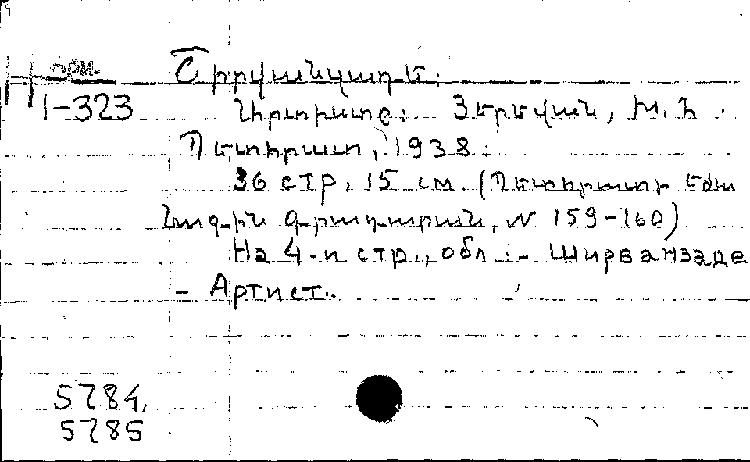 арм.
1-323
Շիրվանզադե.
Արտիստը. Յերեվան,
Պետհրատ, 1938.
36 стр. 15 см. (Պետհրատի
գրադարան, N 159-160)
На 4-й стр., обл.:- Ширванзаде
- Артист.
5784,
5785